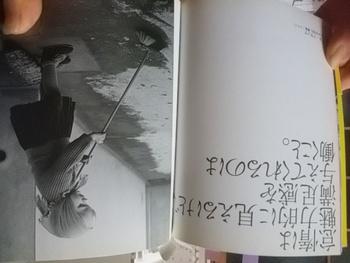 怠惰は
魅力的に見えるけど
満足感を
与えてくれるのは
働くこと。